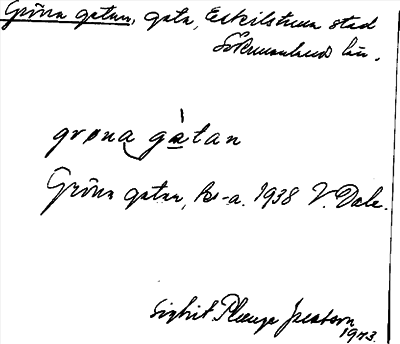 Gröna gatan, gata, Eskilstuna stad
Södermanlands län.
grøna gatan
Gröna gatan, Bs-a. 1938 V. Dale.
Sigbrit Plænge Jacobson
1973.